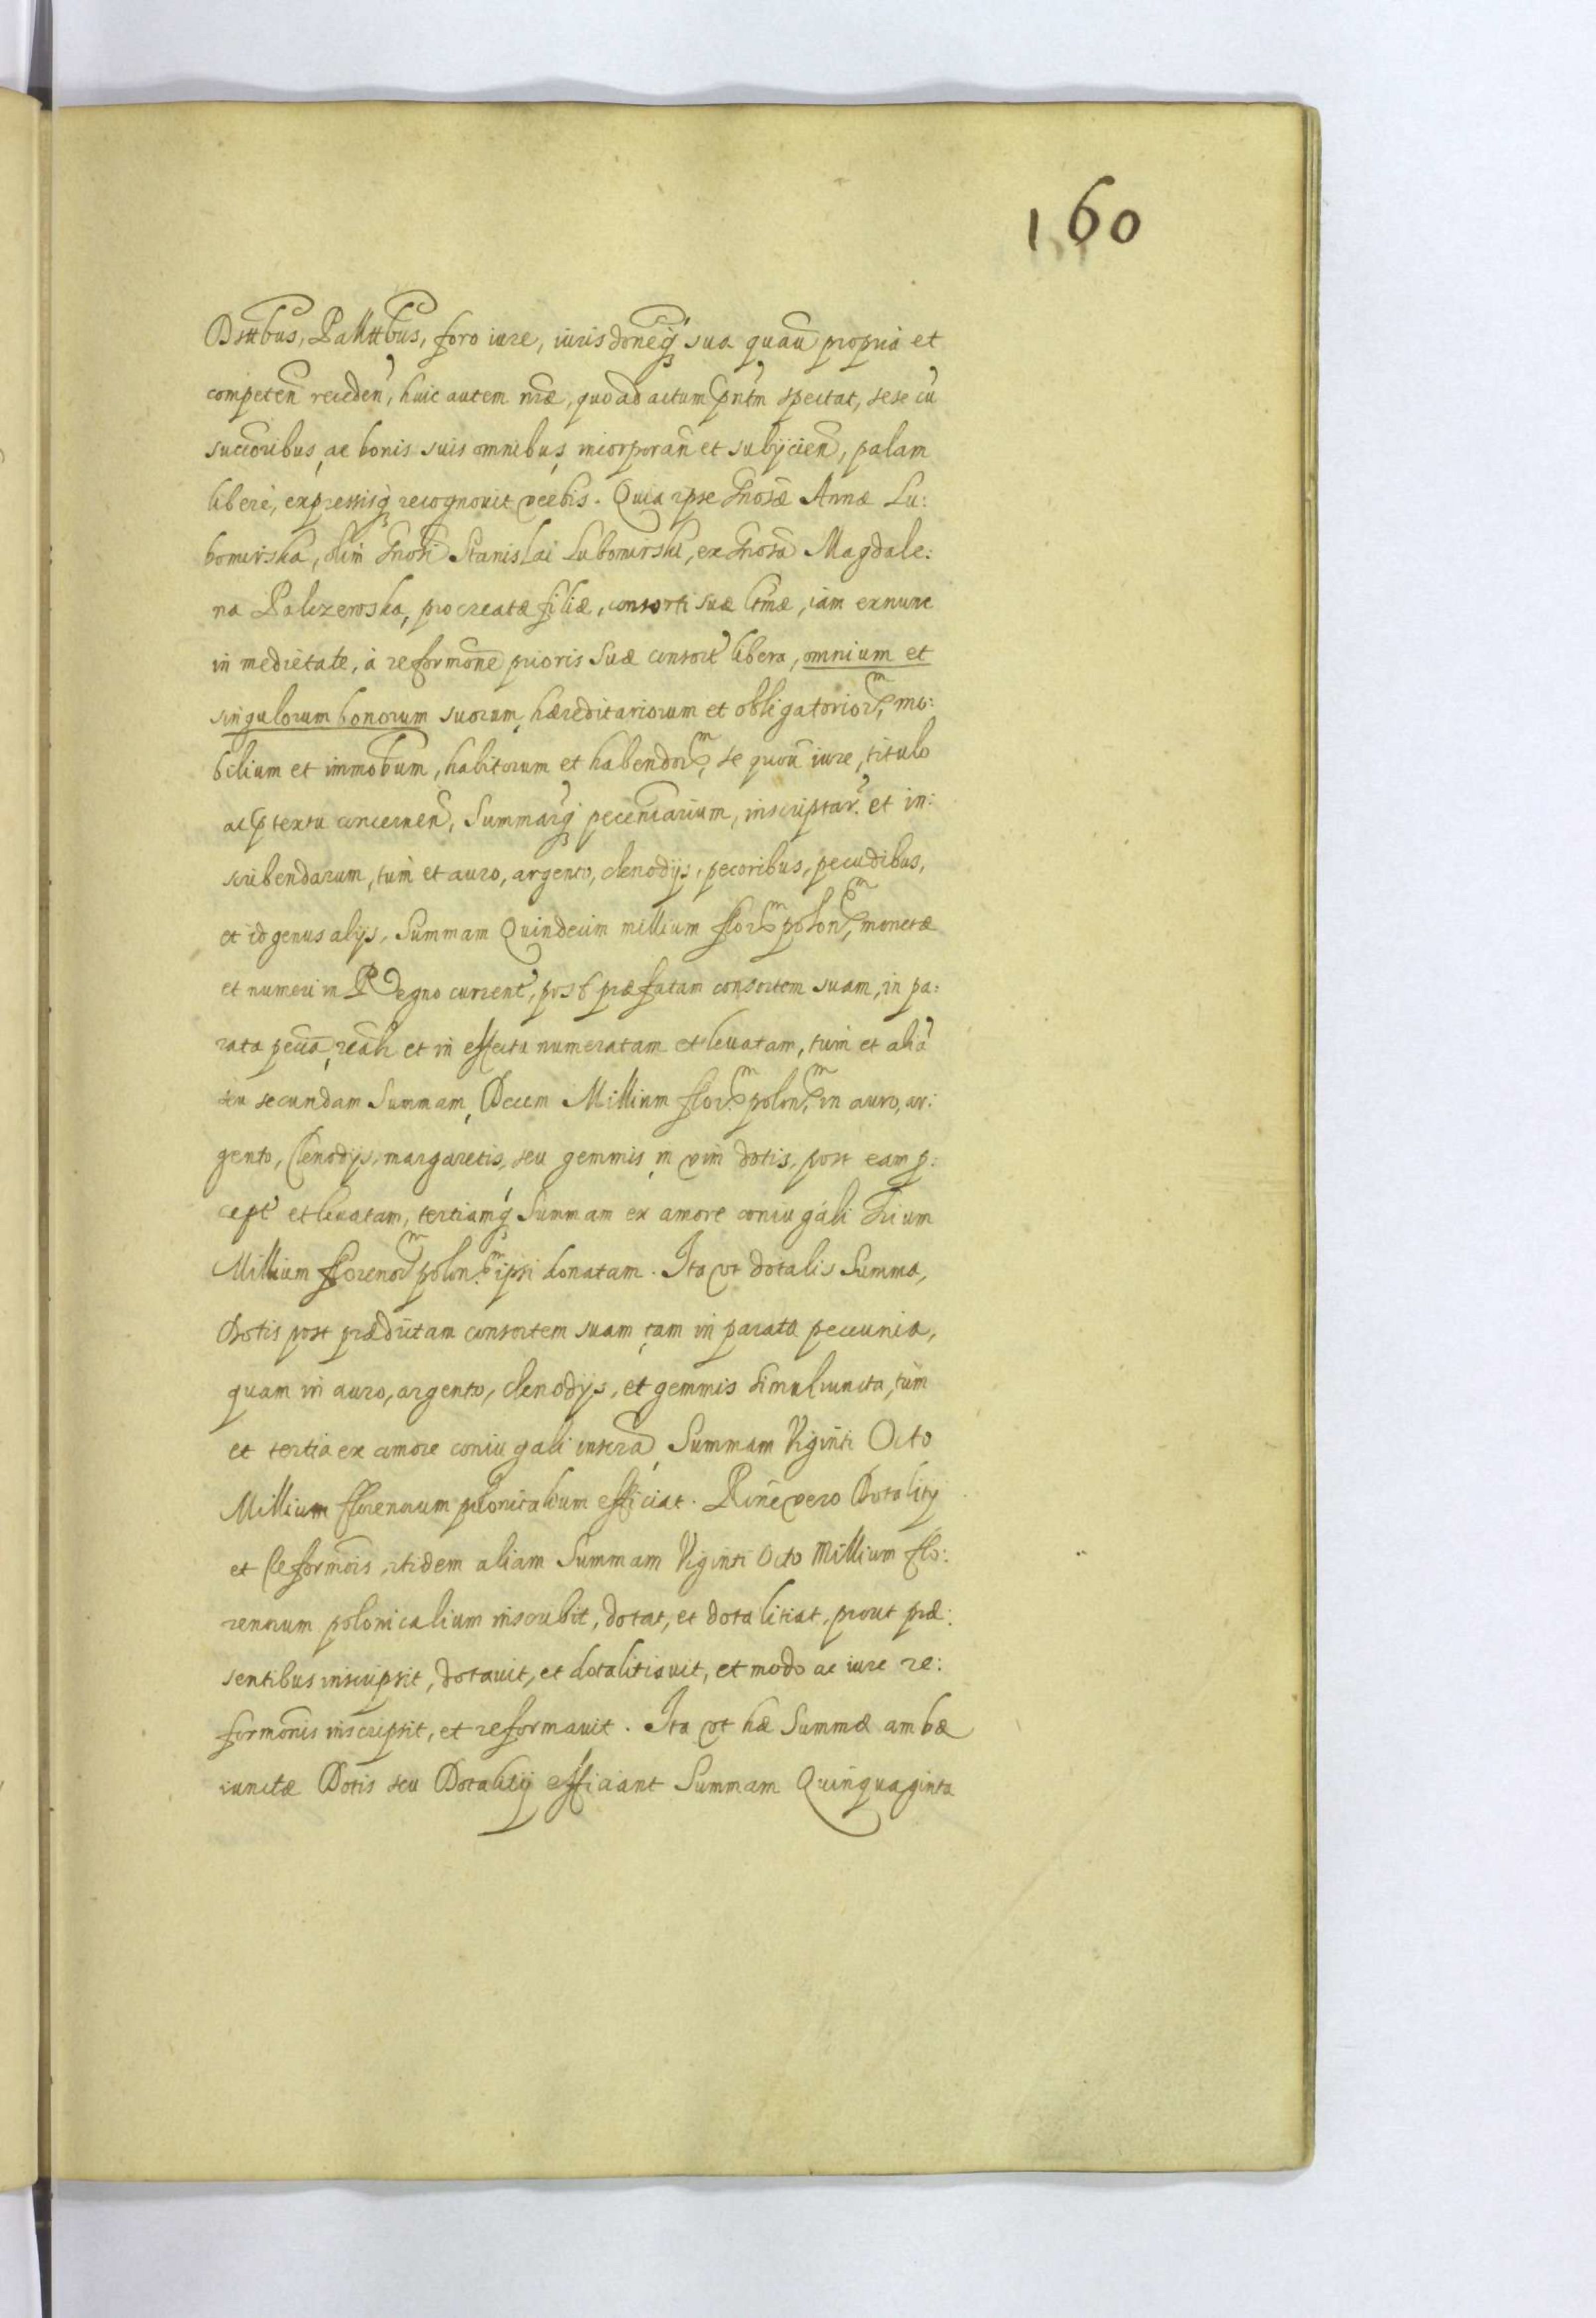 160
Dsttbus, Pallttbus, foro iure, iurisdoneq̃ sua quaũ propria et
competeñ recedeñ, huic autem nrae, quoad actum pñtm spectat, sese cũ
succoribus, ac bonis suis omnibus, incorporañ et subÿcieñ, palam
liberè, expressisq̃ recognouit verbis. Quia ipse Gnosae Annae Lu:
bomirska, olim Gnosi Stanislai Lubomirski, ex Gnosa Magdale:
na Palczewska, procreatae filiae, consorti suae ltmae, iam exnunc
in medietate, à reformone prioris suae consort libera, omnium et
singulorum bonorum suorum, haereditariorum et obligatorior, mo:
bilium et immobum, habitorum et habendor, se quouĩ iure, titulo
ac ptextu concerneñ, Summarq̃ pecuniarium, inscriptar. et in:
scribendarum, tum et auro, argento, clenodÿs, pecoribus, pecudibus,
et id genus alÿs, Summam Quindecim millium flor polon, monetae
et numeri in Regno current, post praefatam consortem suam, in pa:
rata pecũa, reali et in effectu numeratam et leuatam, tum et aliã
seu secundam Summam, Decem Millium flor. polon, in auro, ar:
gento, Clenodÿs, margaretis, seu gemmis in vim dotis, post eam p:
cept et leuatam, tertiamq̃ Summam ex amore coniugali Trium
Millium florenor polon. ipsi donatam. Ita vt dotalis Summa,
Dotis post praedictam consortem suam, tam in parata peccunia,
quam in auro, argento, clenodÿs, et gemmis simul iuncta, tum
et tertia ex amore coniugali inscra, Summam Viginti Octo
Millium florenorum plonicalium efficiat. Rõne vero Dotalitÿ
et Reformõis, itidem aliam Summam Viginti Octo Millium flo:
renorum polonicalium inscribit, dotat, et dotalitiat, prout prae:
sentibus inscripsit, dotauit, et dotalitiauit, et modo ac iure re:
formonis inscripsit, et reformauit. Ita vt hae Summae ambae
iunctae Dotis seu Dotalitÿ efficiant Summam Quinquaginta